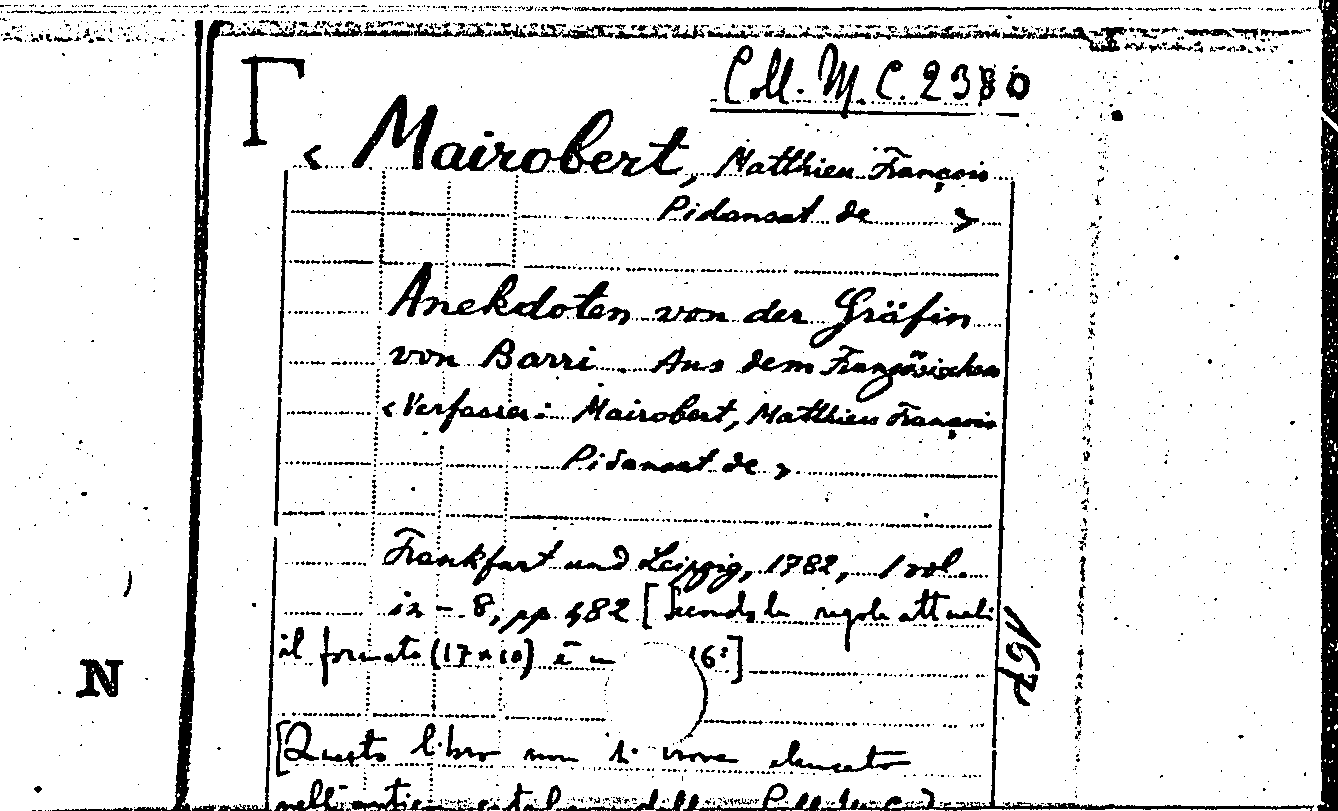 Coll. M. C. 2380
Γ
< Mairobert, Matthieu François
Pidansat de >
Anekdoten von der Gräfin
von Barri. Aus dem Französischen
<Verfasser: Mairobert, Matthieu François
Pidansat de >
Frankfurt und Leipzig, 1782, 1 vol.
in-8, pp 482 [Secondo le regole attuali
il formato (17×10) è 16°]
[Questo libro non si trova elencato
nell'antico catalogo della Coll. M. C.]
N